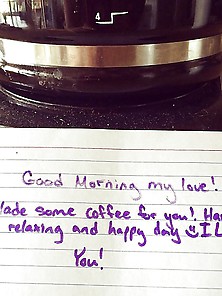 4
Good Morning my love!
Made some coffee for you! Ha
relaxing and happy day I L
You!